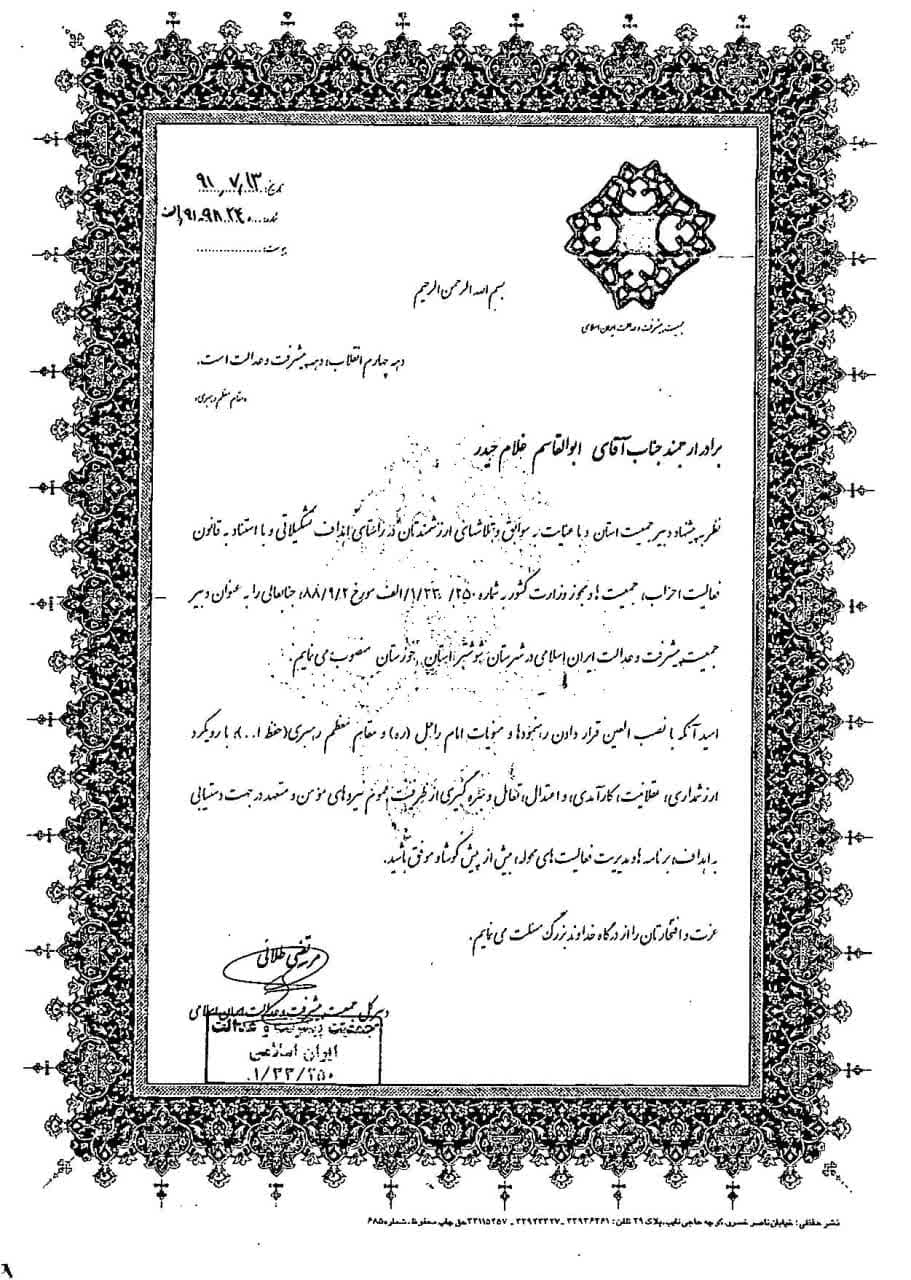 تاریخ: ۹۱/۷/۱۳
شماره: ۹۱-۹۸۰۲۴/الف
پیوست:
جمعیت پیشرفت و عدالت ایران اسلامی
بسم الله الرحمن الرحیم
دهه چهارم انقلاب، دهه پیشرفت و عدالت است.
«مقام معظم رهبری»
برادر ارجمند جناب آقای ابوالقاسم غلام حیدر
نظر به پیشنهاد دبیر جمعیت استان و با عنایت به سوابق و تلاشهای ارزشمندتان در راستای اهداف تشکیلاتی و با استناد به قانون
فعالیت احزاب، جمعیت ها و مجوز وزارت کشور به شماره ۲۵۰/ ۱/۳۳/الف مورخ ۸۸/۹/۲، جنابعالی را به عنوان دبیر
جمعیت پیشرفت و عدالت ایران اسلامی در شهرستان شوشتر استان خوزستان منصوب می نمایم.
امید آنکه با نصب العین قرار دادن رهنمودها و منویات امام راحل (ره) و مقام معظم رهبری (حفظ ا...)، با رویکرد
ارزشمداری، عقلانیت، کارآمدی و اعتدال، تعامل و بهره گیری از ظرفیت عموم نیروهای مؤمن و متعهد در جهت دستیابی
به اهداف، برنامه ها و مدیریت فعالیت های محوله، بیش از پیش کوشا و موفق باشید.
عزت و افتخارتان را از درگاه خداوند بزرگ مسئلت می نمایم.
مرتضی طلائی
دبیر کل جمعیت پیشرفت و عدالت ایران اسلامی
جمعیت پیشرفت و عدالت
ایران اسلامی
۱/۳۳/۲۵۰
نشر حقیقی: خیابان ناصر خسرو، کوچه حاجی نایب، پلاک ۲۹ تلفن: ۳۳۹۳۶۲۶۱ - ۳۳۹۲۳۳۲۷ - ۳۳۱۱۵۲۵۷ حق چاپ محفوظ. شماره ۶۸۵
۸